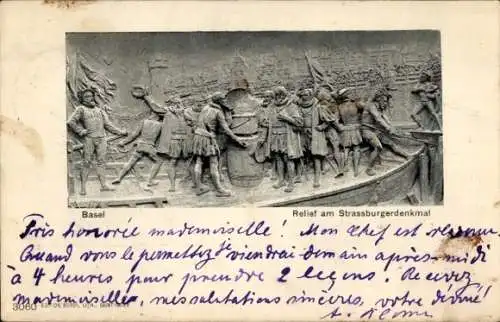 Basel
Relief am Strassburgerdenkmal
Très honorée mademoiselle! Mon chef est revenu.
Quand vous le permettez je viendrai demain après-midi
à 4 heures pour prendre 2 leçons. Recevez,
mademoiselle, mes salutations sincères, votre dévoué
3060